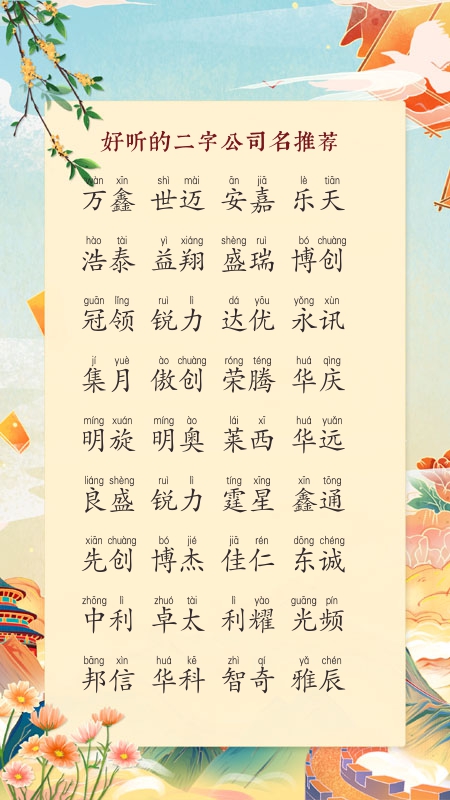 好听的二字公司名推荐
wàn xīn shì mài ān jiā lè tiān
万鑫 世迈 安嘉 乐天
hào tài yì xiáng shèng ruì bó chuàng
浩泰 益翔 盛瑞 博创
guān lǐng ruì lì dá yōu yǒng xùn
冠领 锐力 达优 永讯
jí yuè ào chuàng róng téng huá qìng
集月 傲创 荣腾 华庆
míng xuán míng ào lái xī huá yuǎn
明旋 明奥 莱西 华远
liáng shèng ruì lì tíng xīng xīn tōng
良盛 锐力 霆星 鑫通
xiān chuàng bó jié jiā rén dōng chéng
先创 博杰 佳仁 东诚
zhōng lì zhuó tài lì yào guāng pín
中利 卓太 利耀 光频
bāng xìn huá kē zhì qí yǎ chén
邦信 华科 智奇 雅辰